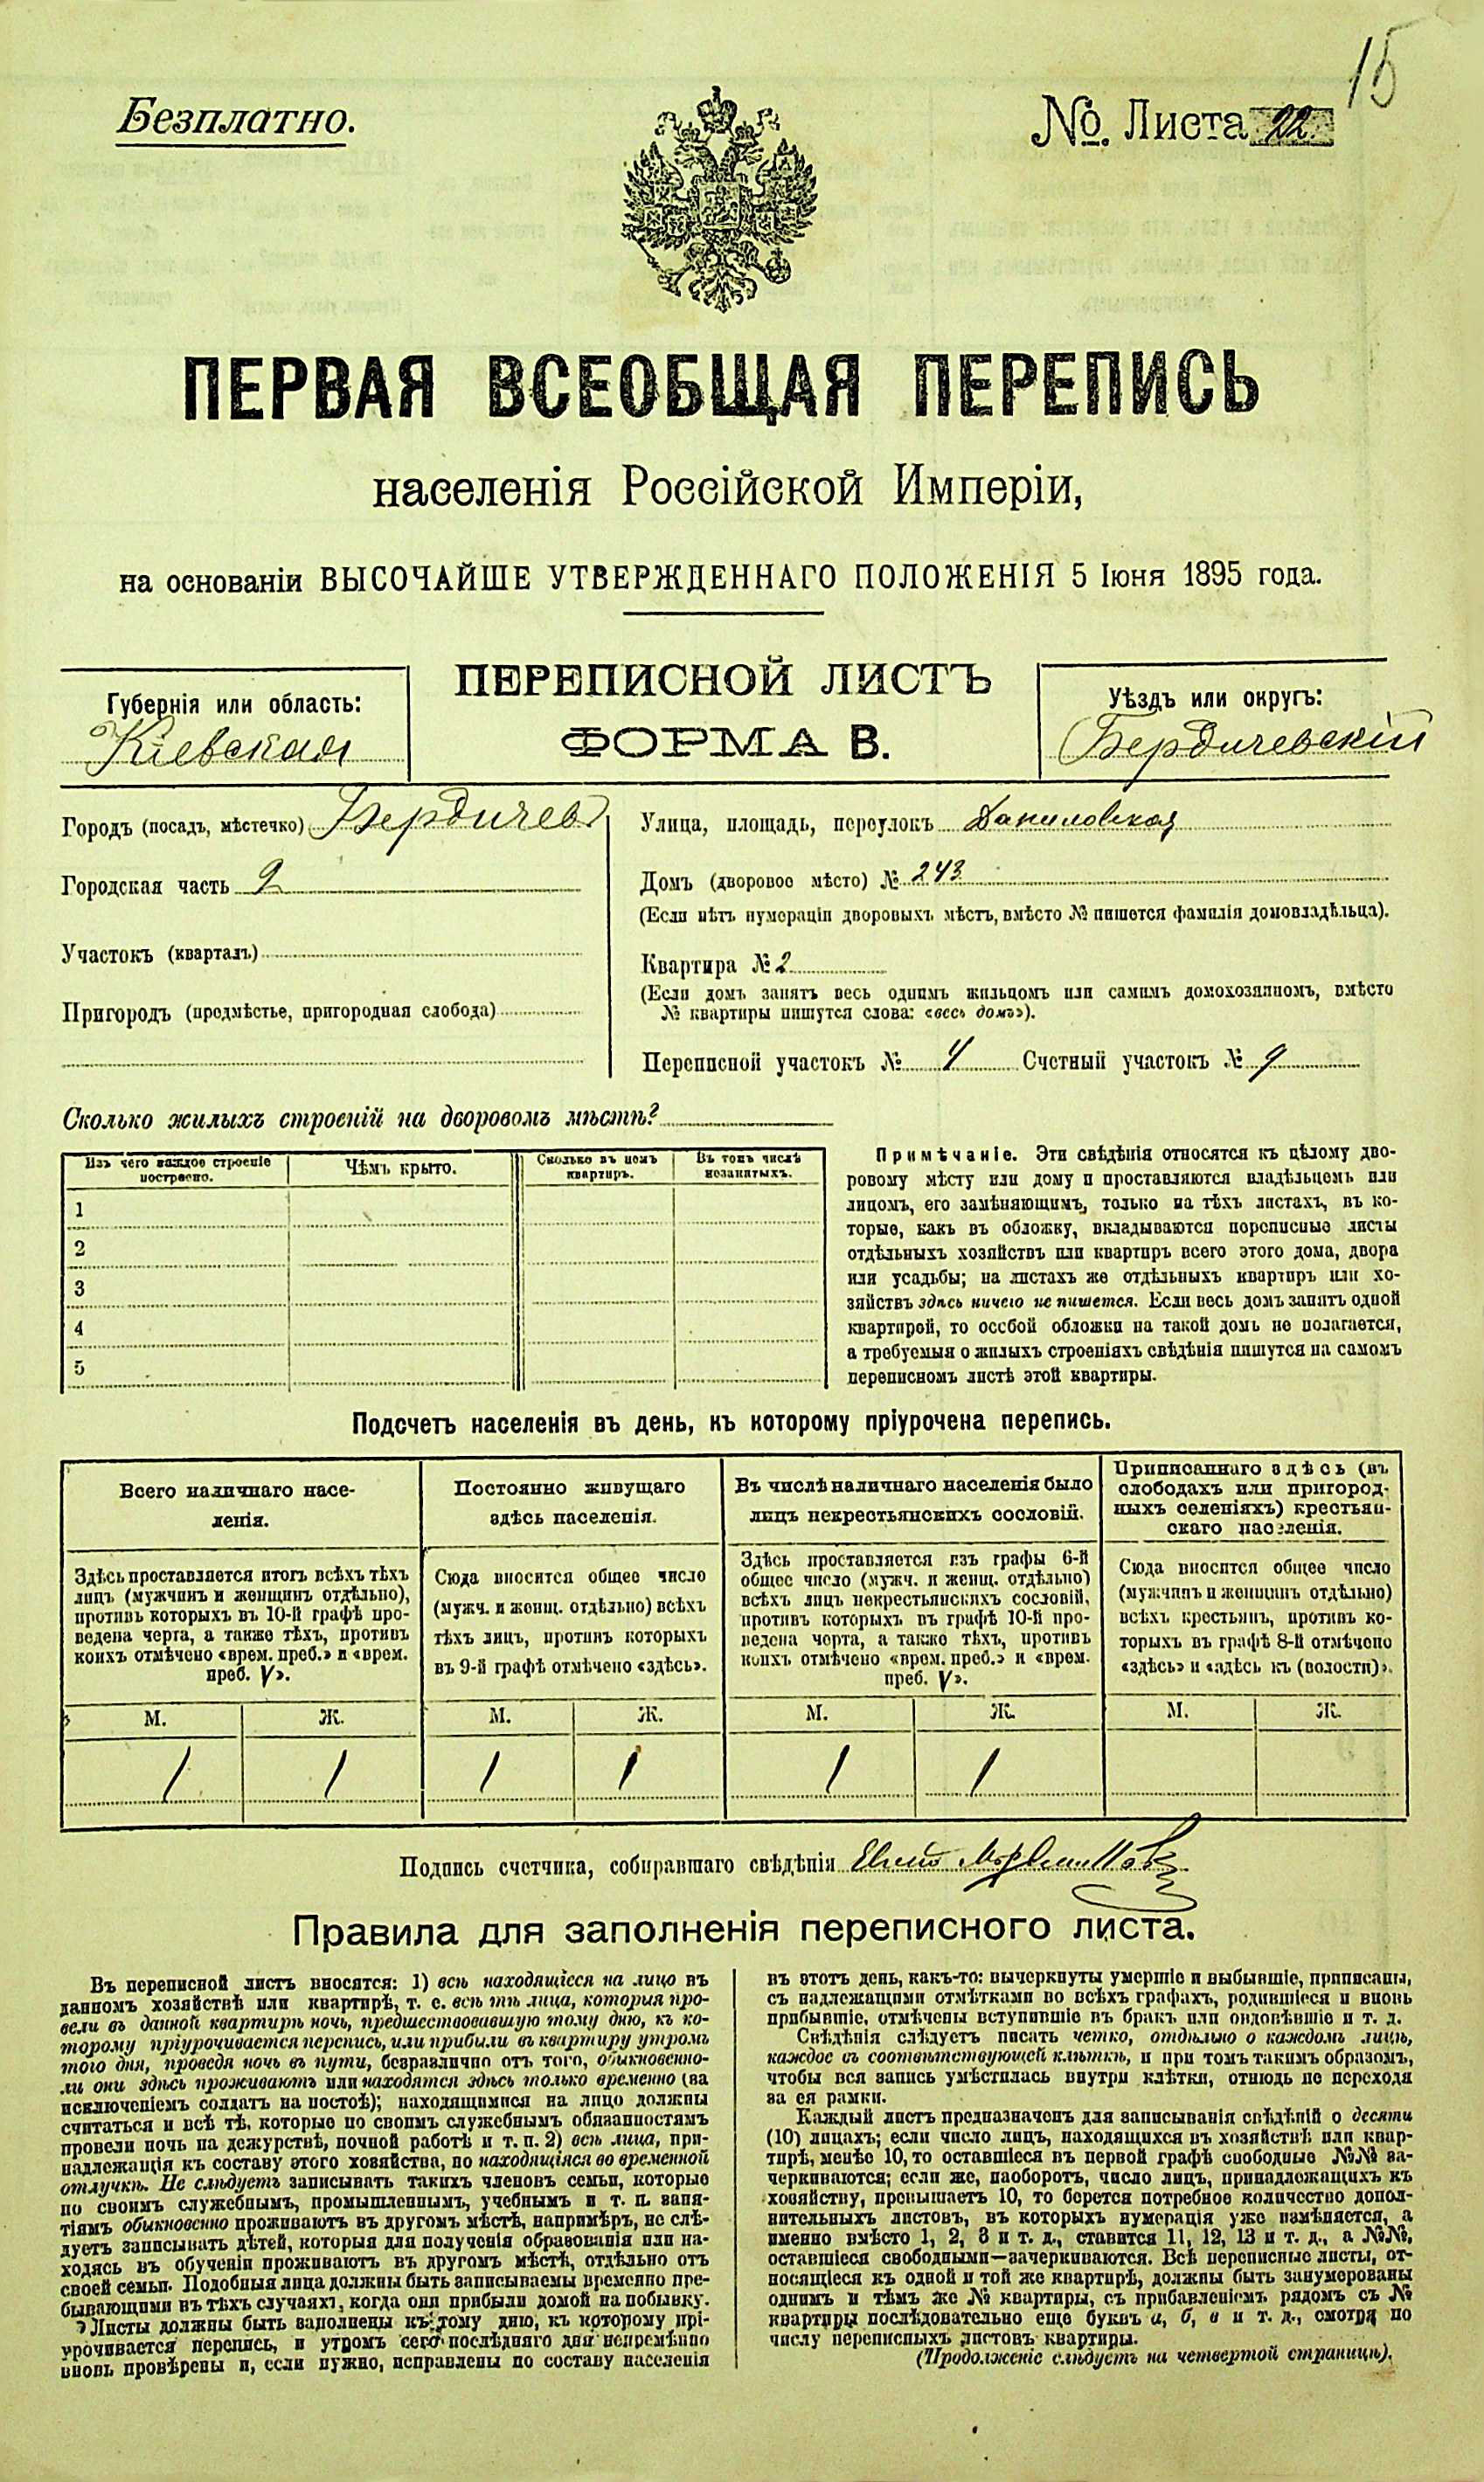 15
Безплатно.
№. Листа 22
ПЕРВАЯ ВСЕОБЩАЯ ПЕРЕПИСЬ
населенія Россійской Имперіи,
на основаніи ВЫСОЧАЙШЕ УТВЕРЖДЕННАГО ПОЛОЖЕНІЯ 5 Іюня 1895 года.
Губернія или область:
Кіевская
ПЕРЕПИСНОЙ ЛИСТЪ
ФОРМА В.
Уѣздъ или округъ:
Бердичевскій
Городъ (посадъ, мѣстечко) Бердичевъ
Городская часть 2
Участокъ (кварталъ)
Пригородъ (предмѣстье, пригородная слобода)
Улица, площадь, переулокъ Даниловская
Домъ (дворовое мѣсто) № 243
(Если нѣтъ нумераціи дворовыхъ мѣстъ, вмѣсто № пишется фамилія домовладѣльца).
Квартира № 2
(Если домъ занятъ весь однимъ жильцомъ или самимъ домохозяиномъ, вмѣсто
№ квартиры пишутся слова: «весь домъ»).
Переписной участокъ № 4 Счетный участокъ № 9
Сколько жилыхъ строеній на дворовомъ мѣстѣ?
Изъ чего каждое строеніе
построено.
Чѣмъ крыто.
Сколько въ немъ
квартиръ.
Въ томъ числѣ
незанятыхъ.
1
2
3
4
5
Примѣчаніе. Эти свѣдѣнія относятся къ цѣлому дво-
ровому мѣсту или дому и проставляются владѣльцемъ или
лицомъ, его замѣняющимъ, только на тѣхъ листахъ, въ ко-
торые, какъ въ обложку, вкладываются переписные листы
отдѣльныхъ хозяйствъ или квартиръ всего этого дома, двора
или усадьбы; на листахъ же отдѣльныхъ квартиръ или хо-
зяйствъ здѣсь ничего не пишется. Если весь домъ занятъ одной
квартирой, то особой обложки на такой домъ не полагается,
а требуемыя о жилыхъ строеніяхъ свѣдѣнія пишутся на самомъ
переписномъ листѣ этой квартиры.
Подсчетъ населенія въ день, къ которому пріурочена перепись.
Всего наличнаго насе-
ленія.
Здѣсь проставляется итогъ всѣхъ тѣхъ
лицъ (мужчинъ и женщинъ отдѣльно),
противъ которыхъ въ 10-й графѣ про-
ведена черта, а также тѣхъ, противъ
коихъ отмѣчено «врем. преб.» и «врем.
преб. V».
Постоянно живущаго
здѣсь населенія.
Сюда вносится общее число
(мужч. и женщ. отдѣльно) всѣхъ
тѣхъ лицъ, противъ которыхъ
въ 9-й графѣ отмѣчено «здѣсь».
Въ числѣ наличнаго населенія было
лицъ некрестьянскихъ сословій.
Здѣсь проставляется изъ графы 6-й
общее число (мужч. и женщ. отдѣльно)
всѣхъ лицъ некрестьянскихъ сословій,
противъ которыхъ въ графѣ 10-й про-
ведена черта, а также тѣхъ, противъ
коихъ отмѣчено «врем. преб.» и «врем.
преб. V».
Приписаннаго здѣсь (въ
слободахъ или пригород-
ныхъ селеніяхъ) крестьян-
скаго населенія.
Сюда вносится общее число
(мужчинъ и женщинъ отдѣльно)
всѣхъ крестьянъ, противъ ко-
торыхъ въ графѣ 8-й отмѣчено
«здѣсь» и «здѣсь къ (волости)».
М. Ж. М. Ж. М. Ж. М. Ж.
1 1 1 1 1 1
Подпись счетчика, собиравшаго свѣдѣнія
Правила для заполненія переписного листа.
Въ переписной листъ вносятся: 1) всѣ находящіеся на лицо въ
данномъ хозяйствѣ или квартирѣ, т. е. всѣ тѣ лица, которыя про-
вели въ данной квартирѣ ночь, предшествовавшую тому дню, къ ко-
торому пріурочивается перепись, или прибыли въ квартиру утромъ
того дня, проведя ночь въ пути, безразлично отъ того, обыкновенно-
ли они здѣсь проживаютъ или находятся здѣсь только временно (за
исключеніемъ солдатъ на постоѣ); находящимися на лицо должны
считаться и всѣ тѣ, которые по своимъ служебнымъ обязанностямъ
провели ночь на дежурствѣ, ночной работѣ и т. п. 2) всѣ лица, при-
надлежащія къ составу этого хозяйства, но находящіяся во временной
отлучкѣ. Не слѣдуетъ записывать такихъ членовъ семьи, которые
по своимъ служебнымъ, промышленнымъ, учебнымъ и т. п. заня-
тіямъ обыкновенно проживаютъ въ другомъ мѣстѣ, напримѣръ, не слѣ-
дуетъ записывать дѣтей, которыя для полученія образованія или на-
ходясь въ обученіи проживаютъ въ другомъ мѣстѣ, отдѣльно отъ
своей семьи. Подобныя лица должны быть записываемы временно пре-
бывающими въ тѣхъ случаяхъ, когда они прибыли домой на побывку.
Листы должны быть заполнены къ тому дню, къ которому прі-
урочивается перепись, и утромъ сего послѣдняго дня непремѣнно
вновь провѣрены и, если нужно, исправлены по составу населенія
въ этотъ день, какъ-то: вычеркнуты умершіе и выбывшіе, приписаны,
съ надлежащими отмѣтками во всѣхъ графахъ, родившіеся и вновь
прибывшіе, отмѣчены вступившіе въ бракъ или овдовѣвшіе и т. д.
Свѣдѣнія слѣдуетъ писать четко, отдѣльно о каждомъ лицѣ,
каждое въ соотвѣтствующей клѣткѣ, и при томъ такимъ образомъ,
чтобы вся запись умѣстилась внутри клѣтки, отнюдь не переходя
за ея рамки.
Каждый листъ предназначенъ для записыванія свѣдѣній о десяти
(10) лицахъ; если число лицъ, находящихся въ хозяйствѣ или квар-
тирѣ, менѣе 10, то оставшіеся въ первой графѣ свободные №№ за-
черкиваются; если же, наоборотъ, число лицъ, принадлежащихъ къ
хозяйству, превышаетъ 10, то берется потребное количество допол-
нительныхъ листовъ, въ которыхъ нумерація уже измѣняется, а
именно вмѣсто 1, 2, 3 и т. д., ставится 11, 12, 13 и т. д., а №№,
оставшіеся свободными—зачеркиваются. Всѣ переписные листы, от-
носящіеся къ одной и той же квартирѣ, должны быть занумерованы
однимъ и тѣмъ же № квартиры, съ прибавленіемъ рядомъ съ №
квартиры послѣдовательно еще буквъ а, б, в и т. д., смотря по
числу переписныхъ листовъ квартиры.
(Продолженіе слѣдуетъ на четвертой страницѣ).